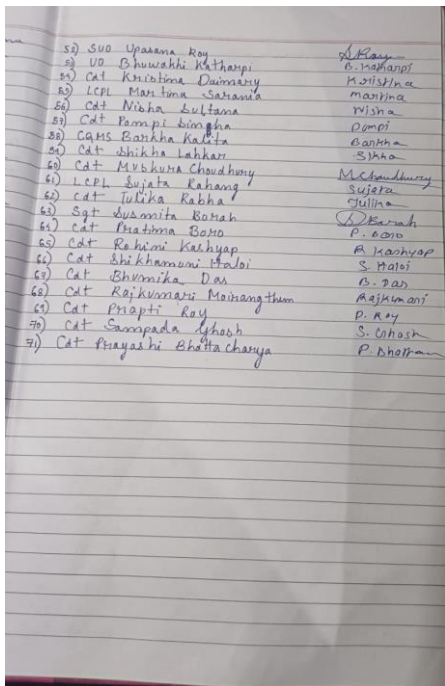 52) SUO Upasana Roy SRoy
53) UO Bhuwakhi Katharpi B. Katharpi
54) Cdt Kristina Daimary Kristina
55) LCPL Martina Sarania martina
56) Cdt Nisha Sultana Nisha
57) Cdt Pampi Singha Pampi
58) CQMS Barkha Kalita Barkha
59) Cdt Shikha Lahkar Sikha
60) Cdt Mubkura Choudhury M.Choudhury
61) LCPL Sujata Rahang Sujata
62) Cdt Tulika Rabha Tulika
63) Sgt Susmita Borah SBorah
64) Cdt Pratima Boro P. Boro
65) Cdt Rohini Kashyap R Kashyap
66) Cdt Shikhamoni Haloi S. Haloi
67) Cdt Bhumika Das B. Das
68) Cdt Rajkumari Moirangthum Rajkumari
69) Cdt Prapti Roy P. Roy
70) Cdt Sampada Ghosh S. Ghosh
71) Cdt Prayashi Bhattacharya